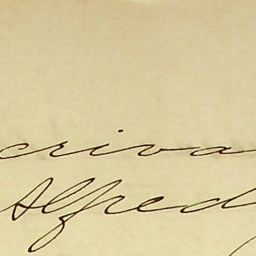 criva
Alfred